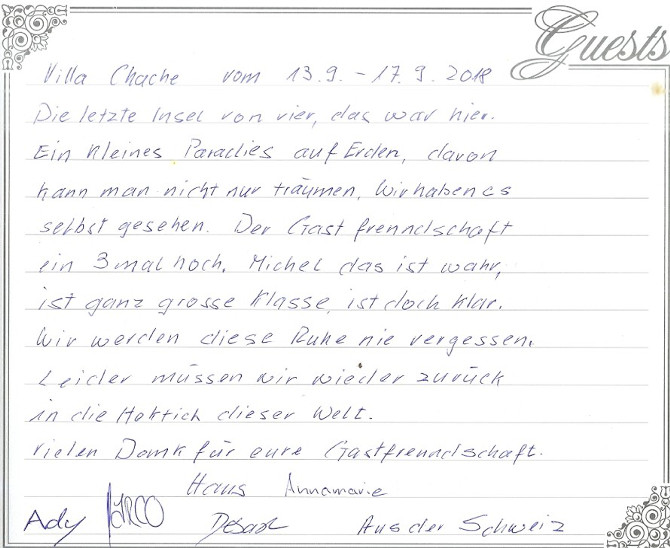 Guests
Villa Chache vom 13.9. - 17.9. 2018
Die letzte Insel von vier, das war hier.
Ein kleines Paradies auf Erden, davon
kann man nicht nur träumen, Wir haben es
selbst gesehen. Der Gast frenndschaft
ein 3 mal hoch. Michel das ist wahr,
ist ganz grosse Klasse, ist doch klar.
Wir werden diese Ruhe nie vergessen.
Leider müssen wir wieder zurück
in die Hektich dieser Welt.
vielen Dank für eure Gastfrenndschaft.
Hans Annamarie
Ady
Aus der Schweiz